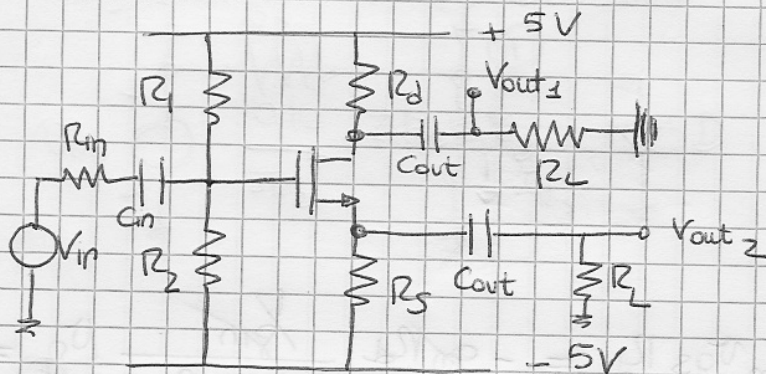 + 5V
R1
Rd
Vout1
Rin
Cin
Cout
RL
Vin
R2
Rs
Cout
RL
Vout2
- 5V